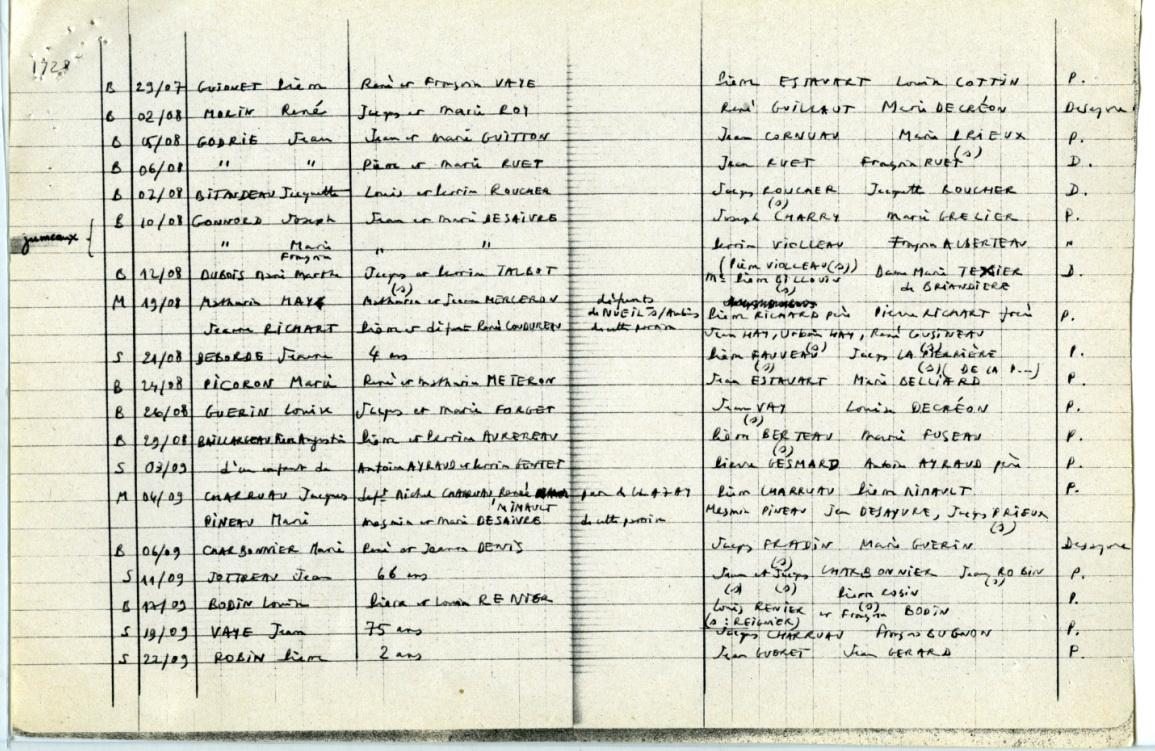 1728
B 29/07 GUIGNET Pierre René et Françoise VAYE Pierre ESTAVART Louise COTTIN P.
B 02/08 MORIN René Jacques et Marie ROY René GUILLAUT Marie DECRÉON Desayvre
B 05/08 GODRIE Jean Jean et Marie GUITTON Jean CORNUAU Marie PRIEUX P.
(s)
B 06/08 " " Pierre et Marie RUET Jean RUET Françoise RUET D.
B 07/08 BITAUDEAU Jacquette Louis et Perrine ROUCHER Jacques ROUCHER Jacquette BOUCHER D.
(s)
B 10/08 GONNORD Joseph Jean et Marie DESAIVRE Joseph CHARRY Marie GRELIER P.
jumeaux
" Marie Françoise " " Perrine VIOLLEAU Françoise ALBERTEAU "
(Pierre VIOLLEAU (s))
B 12/08 DUBOIS Marie Marthe Jacques et Perrine TALBOT Me Pierre BILLOUIN Dame Marie TEXIER D.
(s) (s) de BRIANDIERE
M 19/08 Mathurin HAY Mathurin et Jeanne MERCERON défunts de NUEIL s/Aubiers Pierre RICHARD père Pierre RICHART frère P.
Jeanne RICHART Pierre et défunte Renée COUDUREN de cette paroisse Jean HAY, Urbain HAY, René COUSINEAU
(s) (s)
S 21/08 DEBORDE Jeanne 4 ans Pierre FAUVEAU Jacques LA PERRIÈRE P.
(s) (s) ( DE LA P...)
B 24/08 PICORON Marie René et Mathurine METERON Jean ESTAVART Marie BELLIARD P.
B 26/08 GUERIN Louise Jacques et Marie FORGET Jean VAY Louise DECRÉON P.
(s)
B 29/08 BAILLARGEAU Pierre Augustin Pierre et Perrine AUREREAU Pierre BERTEAU Marie FUSEAU P.
(s)
S 03/09 d'un enfant de Antoine AYRAUD et Perrine GENTET Pierre GESMARD Antoine AYRAUD père P.
M 04/09 CHARRUAU Jacques deft Michel CHARRUAU, Renée MINAULT par. de CLAZAY Pierre CHARRUAU Pierre MINAULT P.
PINEAU Marie Mesmin et Marie DESAIVRE de cette paroisse Mesmin PINEAU Jean DESAYVRE, Jacques PRIEUX
(s)
B 06/09 CHARBONNIER Marie René et Jeanne DENIS Jacques PRADIN Marie GUERIN Desayvre
(s)
S 11/09 JOTTREAU Jean 66 ans Jean et Jacques CHARBONNIER Jean ROBIN P.
(s) (s) Pierre ROBIN (s)
B 17/09 BODIN Louise Pierre et Louise RENIER Louis RENIER et Françoise BODIN P.
(s) (s : REIGNIER)
S 19/09 VAYE Jean 75 ans Jacques CHARRUAU François BUGNON P.
S 22/09 ROBIN Pierre 2 ans Jean GUERET Jean GERARD P.